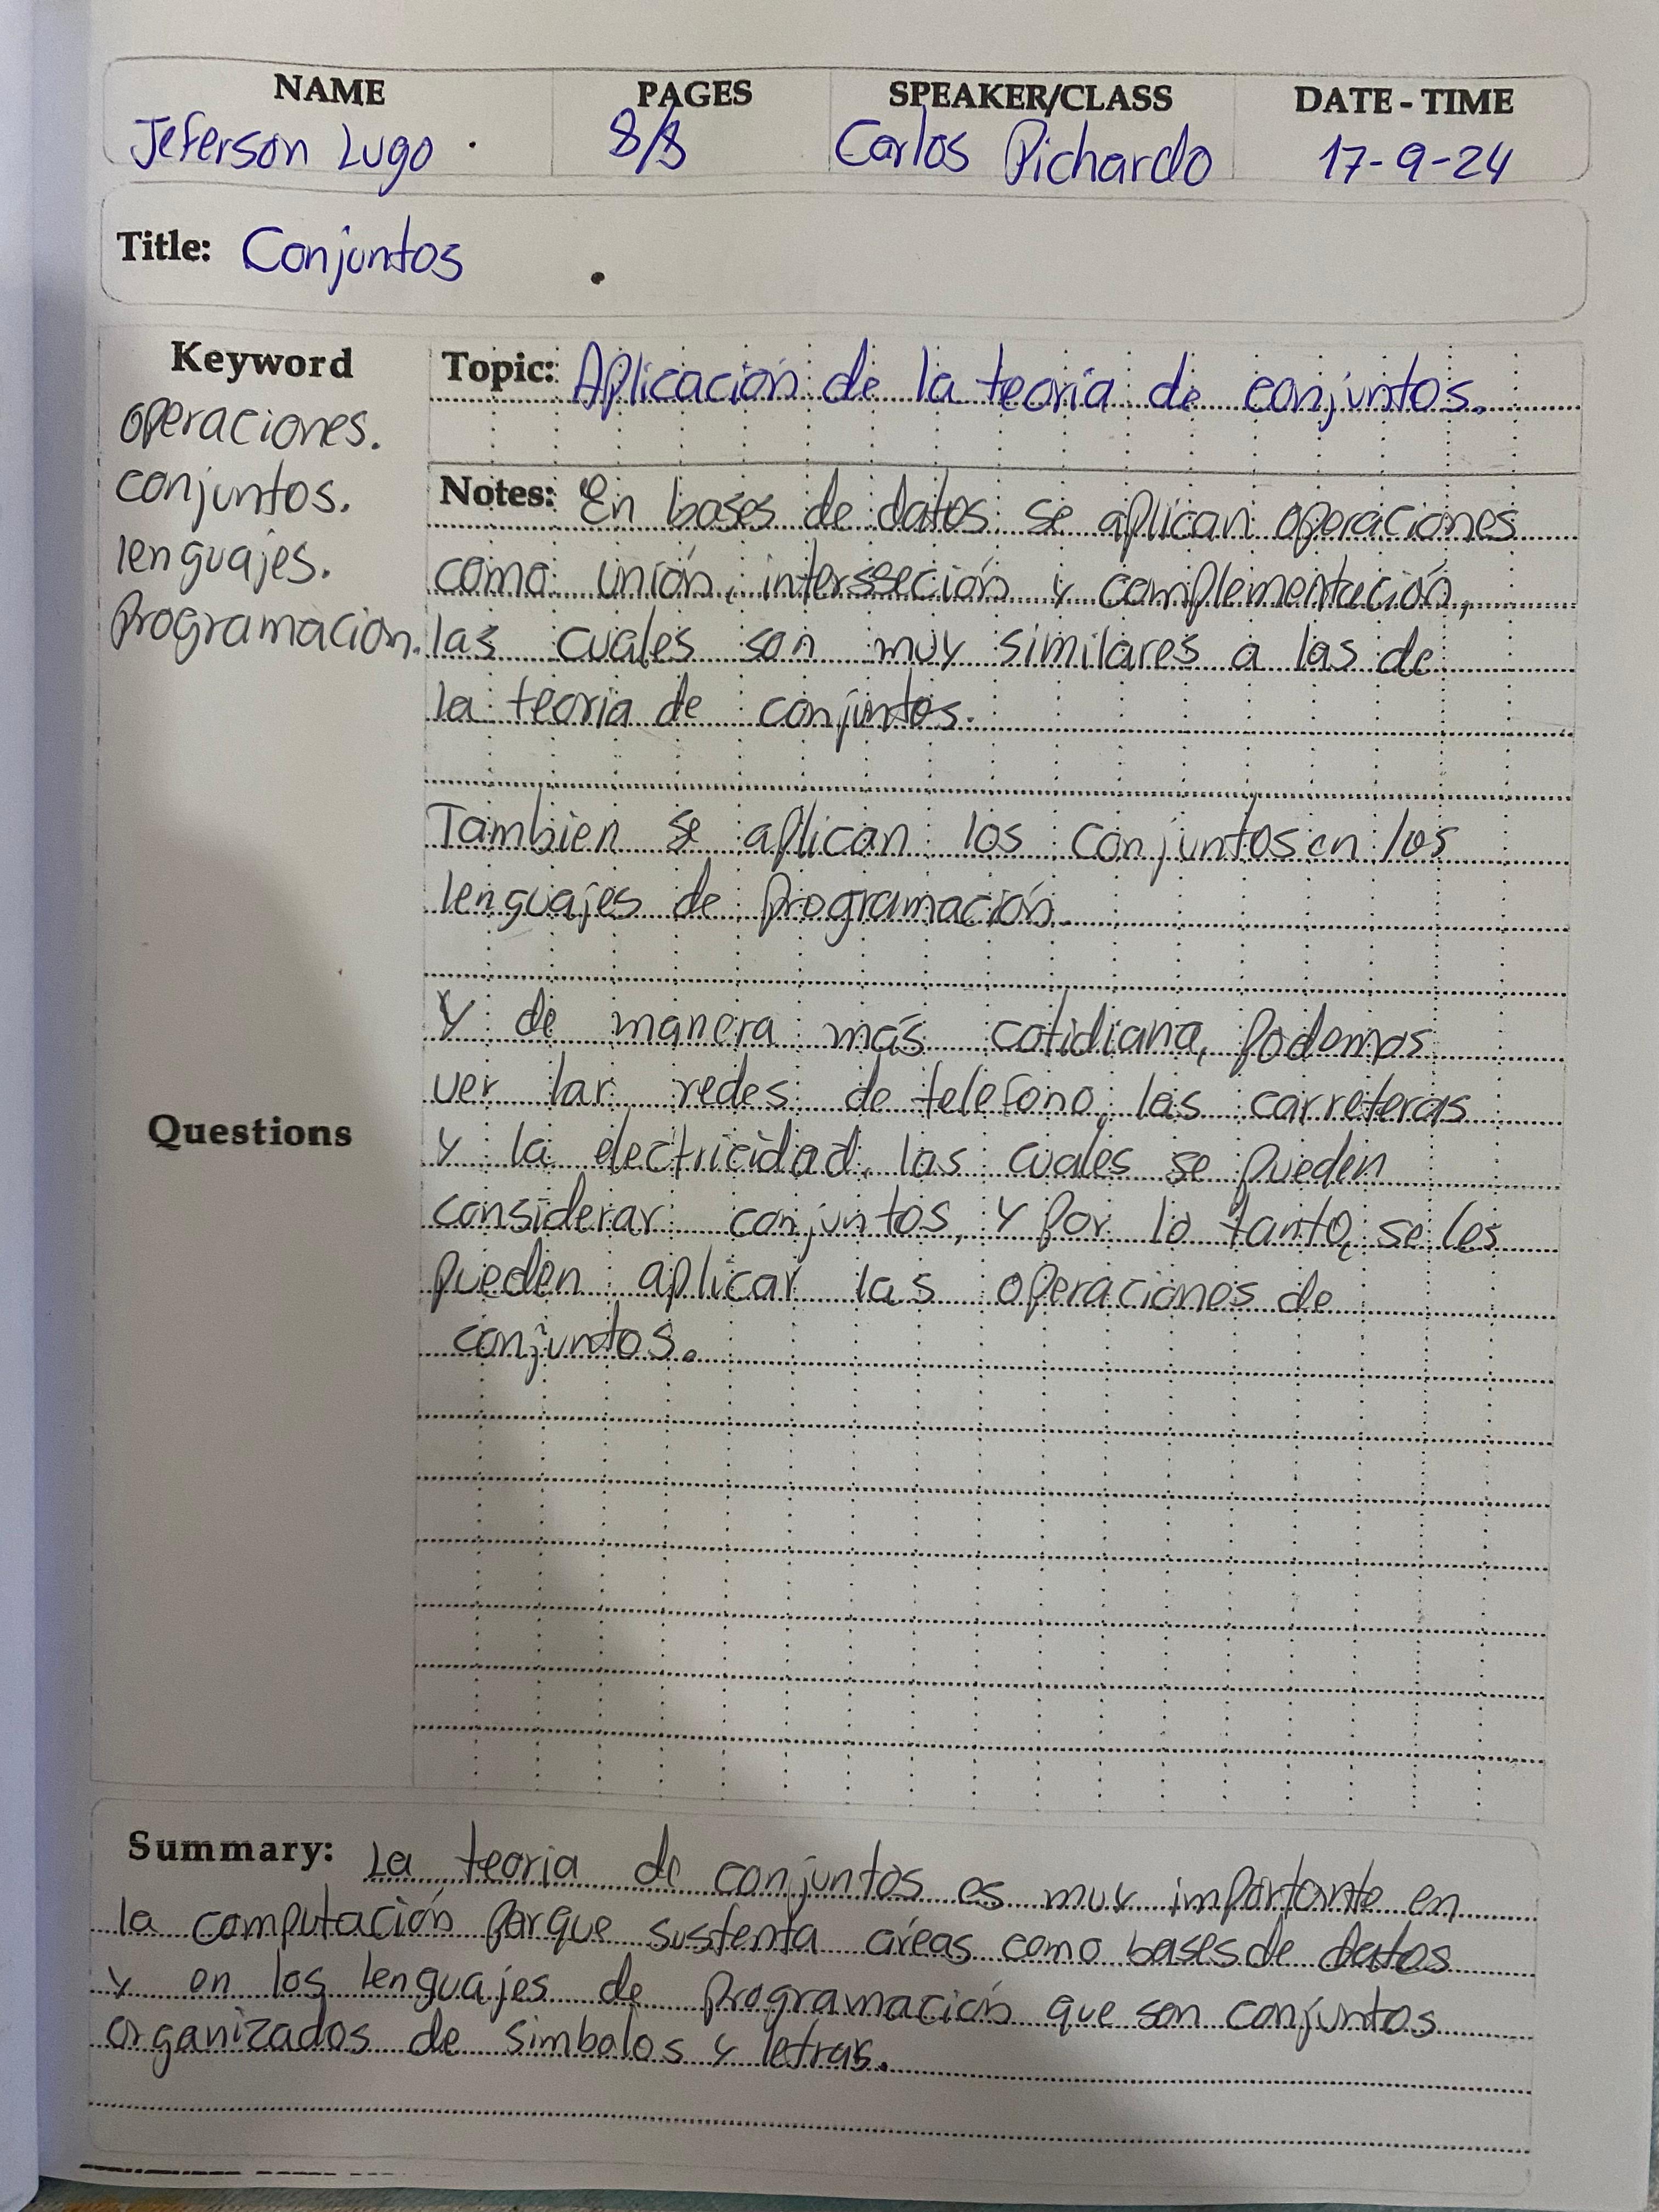 NAME PAGES SPEAKER/CLASS DATE - TIME
Jeferson Lugo. 8/8 Carlos Pichardo 17-9-24
Title: Conjuntos
Keyword
operaciones.
conjuntos.
lenguajes.
Programacion.
Questions
Topic: Aplicación de la teoría de conjuntos.
Notes: En bases de datos se aplican operaciones
como unión, interssección y complementación,
las cuales son muy similares a las de
la teoria de conjuntos.
Tambien se aplican los conjuntos en los
lenguajes de programación.
Y de manera más cotidiana, podemos
ver lar redes de telefono, las carreteras
y la electricidad, las cuales se pueden
considerar conjuntos, y por lo tanto, se les
pueden aplicar las operaciones de
conjuntos.
Summary: La teoria de conjuntos es muy importante en
la computación porque sustenta aréas como bases de datos
y en los lenguajes de programación que son conjuntos
organizados de simbolos y letras.